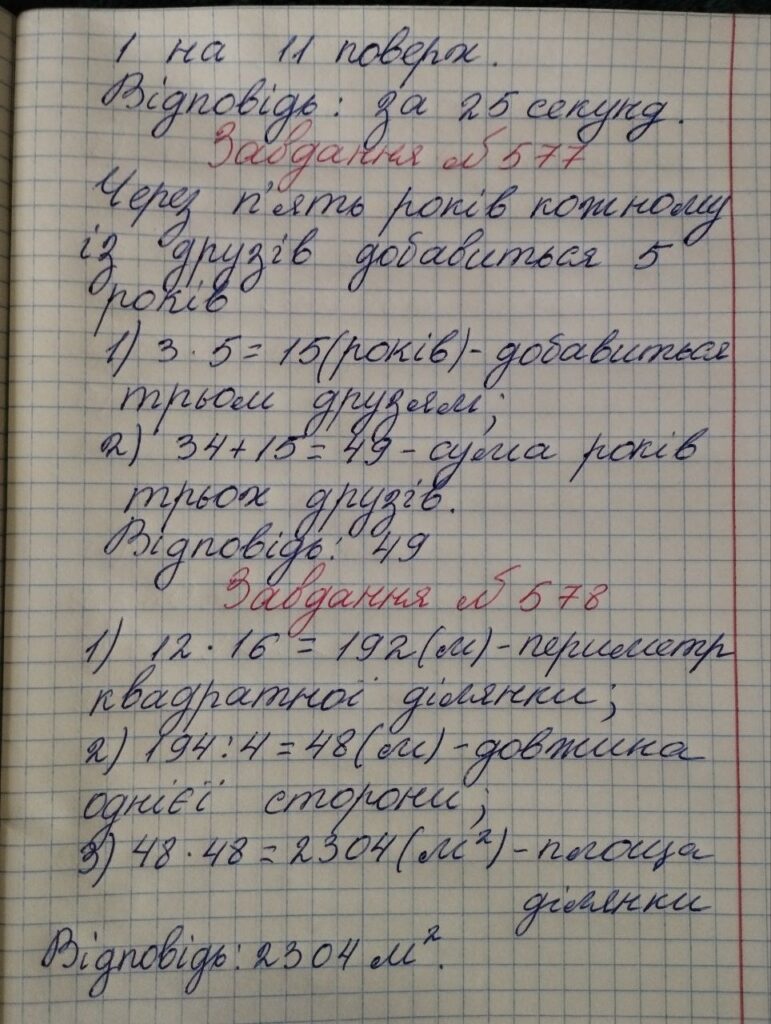 1 на 11 поверх.
Відповідь: за 25 секунд.
Завдання № 577
Через п'ять років кожному
із друзів добавиться 5
років
1) 3 · 5 = 15 (років) - добавиться
трьом друзям;
2) 34 + 15 = 49 - сума років
трьох друзів.
Відповідь: 49
Завдання № 578
1) 12 · 16 = 192 (м) - периметр
квадратної ділянки;
2) 194 : 4 = 48 (м) - довжина
однієї сторони;
3) 48 · 48 = 2304 (м²) - площа
ділянки
Відповідь: 2304 м².